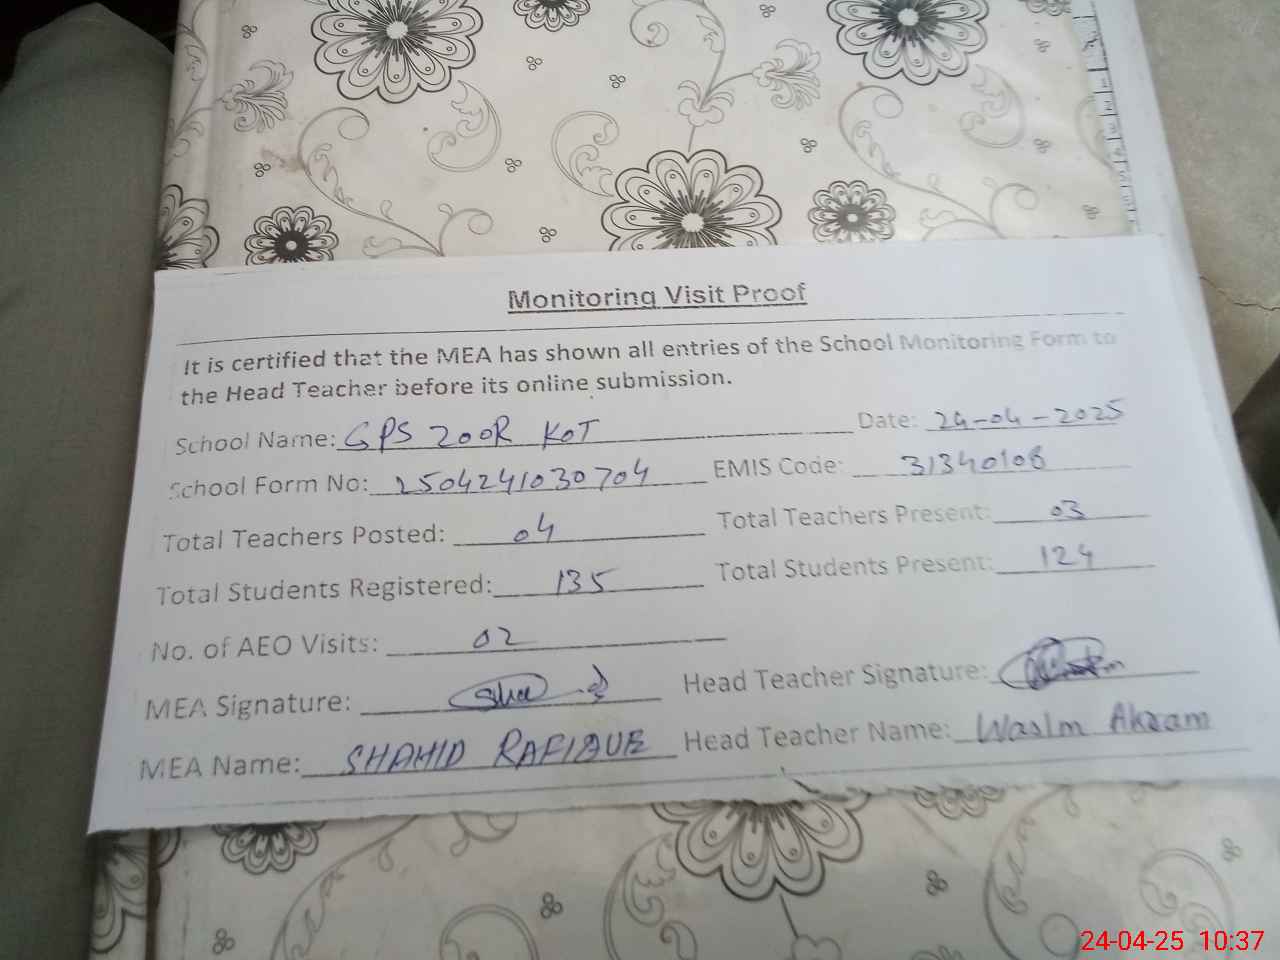 Monitoring Visit Proof
It is certified that the MEA has shown all entries of the School Monitoring Form to
the Head Teacher before its online submission.
School Name: GPS ZOOR KOT Date: 24-04-2025
School Form No: 2504241030704 EMIS Code: 31340106
Total Teachers Posted: 04 Total Teachers Present: 03
Total Students Registered: 135 Total Students Present: 124
No. of AEO Visits: 02
MEA Signature: Head Teacher Signature:
MEA Name: SHAHID RAFIQUE Head Teacher Name: WasIm Akram
24-04-25 10:37